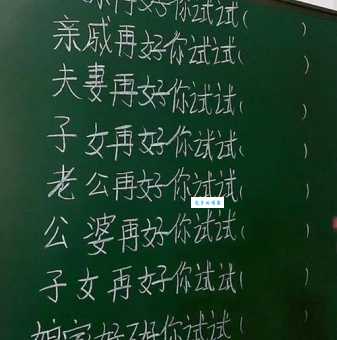 再好你试试( )
亲戚再好你试试( )
夫妻再好你试试( )
子女再好你试试( )
老公再好你试试( )
公婆再好你试试( )
子女再好你试试( )
娘家好 你试试( )